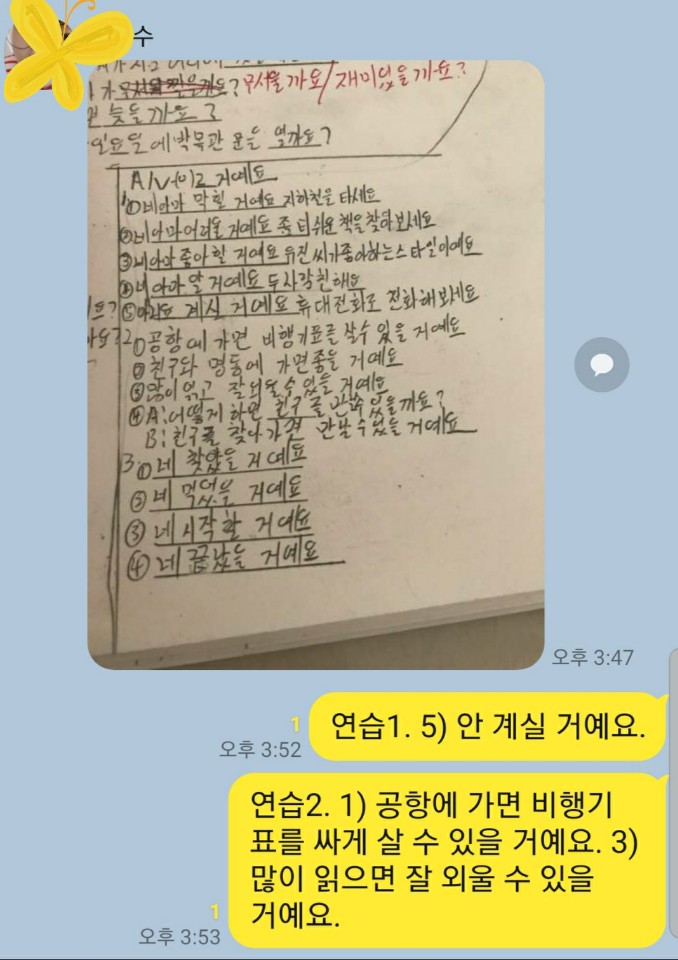 수
무서울까요/재미있을까요?
늦을까요?
일요일에 박물관 문을 열까요?
A/V-(으)ㄹ 거예요
①네 아마 막힐 거예요 지하철을 타세요
②네 아마 어려울 거예요 좀 더 쉬운 책을 찾아보세요
③네 아마 좋아할 거예요 유진 씨가 좋아하는 스타일이에요
④네 아마 알 거예요 두 사람 친해요
⑤아니요 계실 거예요 휴대전화로 전화해 보세요
2 ①공항에 가면 비행기표를 살 수 있을 거예요
②친구와 명동에 가면 좋을 거예요
③많이 읽고 잘 외울 수 있을 거예요
④A:어떻게 하면 친구를 만날 수 있을까요?
B:친구를 찾아가면 만날 수 있을 거예요
3 ①네 찾았을 거예요
②네 먹었을 거예요
③네 시작할 거예요
④네 끝났을 거예요
오후 3:47
연습1. 5) 안 계실 거예요.
1
오후 3:52
연습2. 1) 공항에 가면 비행기
표를 싸게 살 수 있을 거예요. 3)
많이 읽으면 잘 외울 수 있을
거예요.
1
오후 3:53